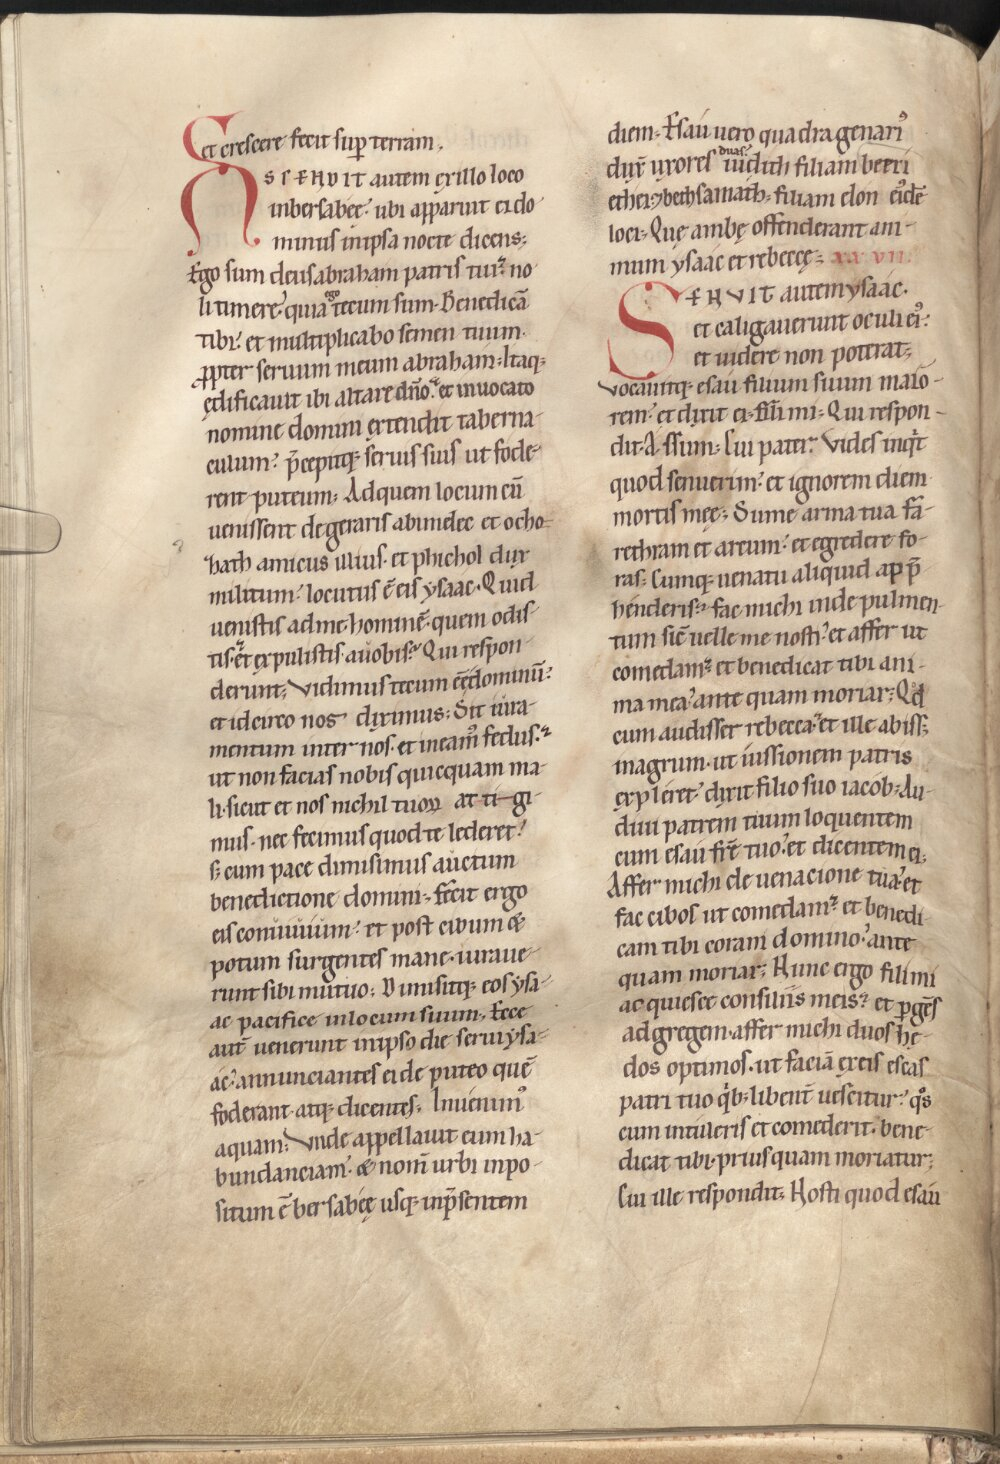 et crescere fecit sup̄ terram.
ASCENDIT autem ex illo loco
inbersabeę. ubi apparuit ei do-
minus inipsa nocte dicens;
Ego sum deus abraham patris tui. no-
li timere. quia ego tecum sum. Benedicā
tibi. et multiplicabo semen tuum.
ꝓpter seruum meum abraham. Itaq;
ędificauit ibi altare dn̄o. et inuocato
nomine domini extendit taberna-
culum. p̄cepitq; seruis suis ut fode-
rent puteum. Ad quem locum cū
uenissent de geraris abimelec et ocho-
hath amicus illius. et phichol dux
militum. locutus ē eis ysaac. Quid
uenistis ad me hominē. quem odis-
tis. et expulistis a uobis? Qui respon-
derunt; Vidimus tecum eē dominū.
et idcirco nos diximus; Sit iura-
mentum inter nos. et ineam᷒ fedus.
ut non facias nobis quicquam ma-
li. sicut et nos nichil tuoꝝ atti-gi-
mus. nec fecimus quod te lederet.
s; cum pace dimisimus auctum
benedictione domini. Fecit ergo
eis conuiuium. et post cibum &
potum surgentes mane. iuraue-
runt sibi mutuo; Dimisitq; eos ysa-
ac pacifice in locum suum. Ecce
aut̄ uenerunt in ipso die serui ysa-
ac. annunciantes ei de puteo quē
foderant. atq; dicentes. Inuenim᷒
aquam. Vnde appellauit eum ha-
bundanciam. & nom̄ urbi inpo-
situm ē bersabeę usq; inp̄sentem
diem. Esau uero quadragenari᷒
dux̄ uxores duas. iudith filiam beeri
ethei. ⁊ bethsamath. filiam elon ei᷒dē
loci. Quę ambę offenderant ani-
mum ysaac et rebeccę. xx vii.
SENVIT autem ysaac.
et caligauerunt oculi ei᷒.
et uidere non poterat;
vocauitq; esau filium suum maio-
rem. et dixit ei. fili mi. Qui respon-
dit. Assum. Cui pater. Vides inqͥt
quod senuerim. et ignorem diem
mortis meę; Sume arma tua fa-
rethram et arcum. et egredere fo-
ras; Cumq; uenatu aliquid app̄-
henderis. fac michi inde pulmen-
tum sic̄ uelle me nosti. et affer ut
comedam. et benedicat tibi ani-
ma mea. ante quam moriar; Qd̄
cum audisset rebecca. et ille abiss;
in agrum. ut iussionem patris
expleret. dixit filio suo iacob. Au-
diui patrem tuum loquentem
cum esau fr̄e tuo. et dicentem ei;
Affer michi de uenacione tua. et
fac cibos ut comedam. et benedi-
cam tibi coram domino. ante
quam moriar; Nunc ergo fili mi
acquiesce consiliis meis. et ꝑges
ad gregem. affer michi duos hę-
dos optimos. ut faciā ex eis escas
patri tuo qͥb; libent̄ uescitur. qͦs
cum intuleris et comederit. bene-
dicat tibi. prius quam moriatur;
Cui ille respondit; Nosti quod esau